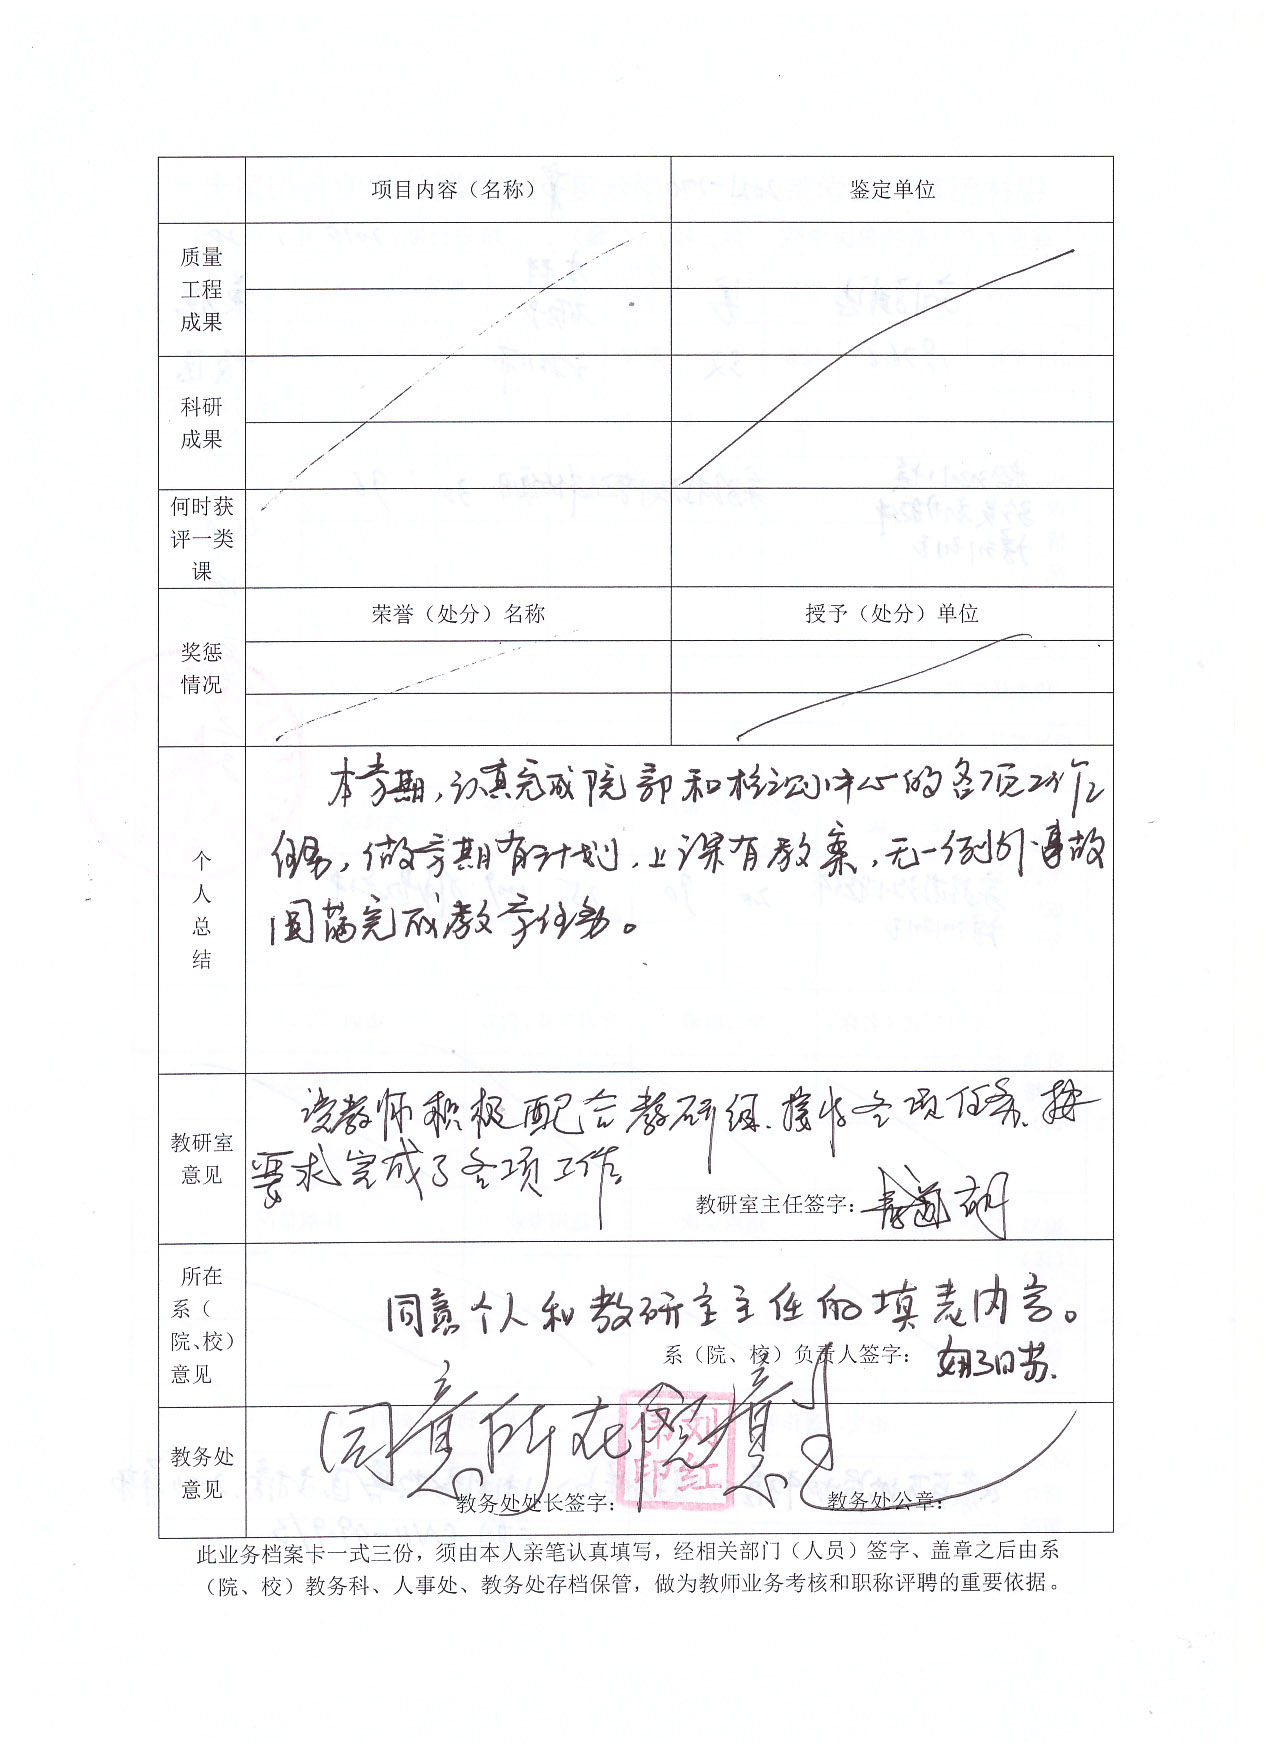 项目内容（名称） 鉴定单位
质量
工程
成果
科研
成果
何时获
评一类
课
荣誉（处分）名称 授予（处分）单位
奖惩
情况
个
人
总
结
本学期，认真完成院部和检测中心的各项工作
任务，做学期有计划，上课有教案，无一例外事故
圆满完成教学任务。
教研室
意见
该教师积极配合教研组、接收各项任务、按
要求完成了各项工作。
教研室主任签字：
所在
系（
院、校）
意见
同意个人和教研室主任的填表内容。
系（院、校）负责人签字：
教务处
意见
同意所在院意
刘红伟印
教务处处长签字： 教务处公章：
此业务档案卡一式三份，须由本人亲笔认真填写，经相关部门（人员）签字、盖章之后由系
（院、校）教务科、人事处、教务处存档保管，做为教师业务考核和职称评聘的重要依据。